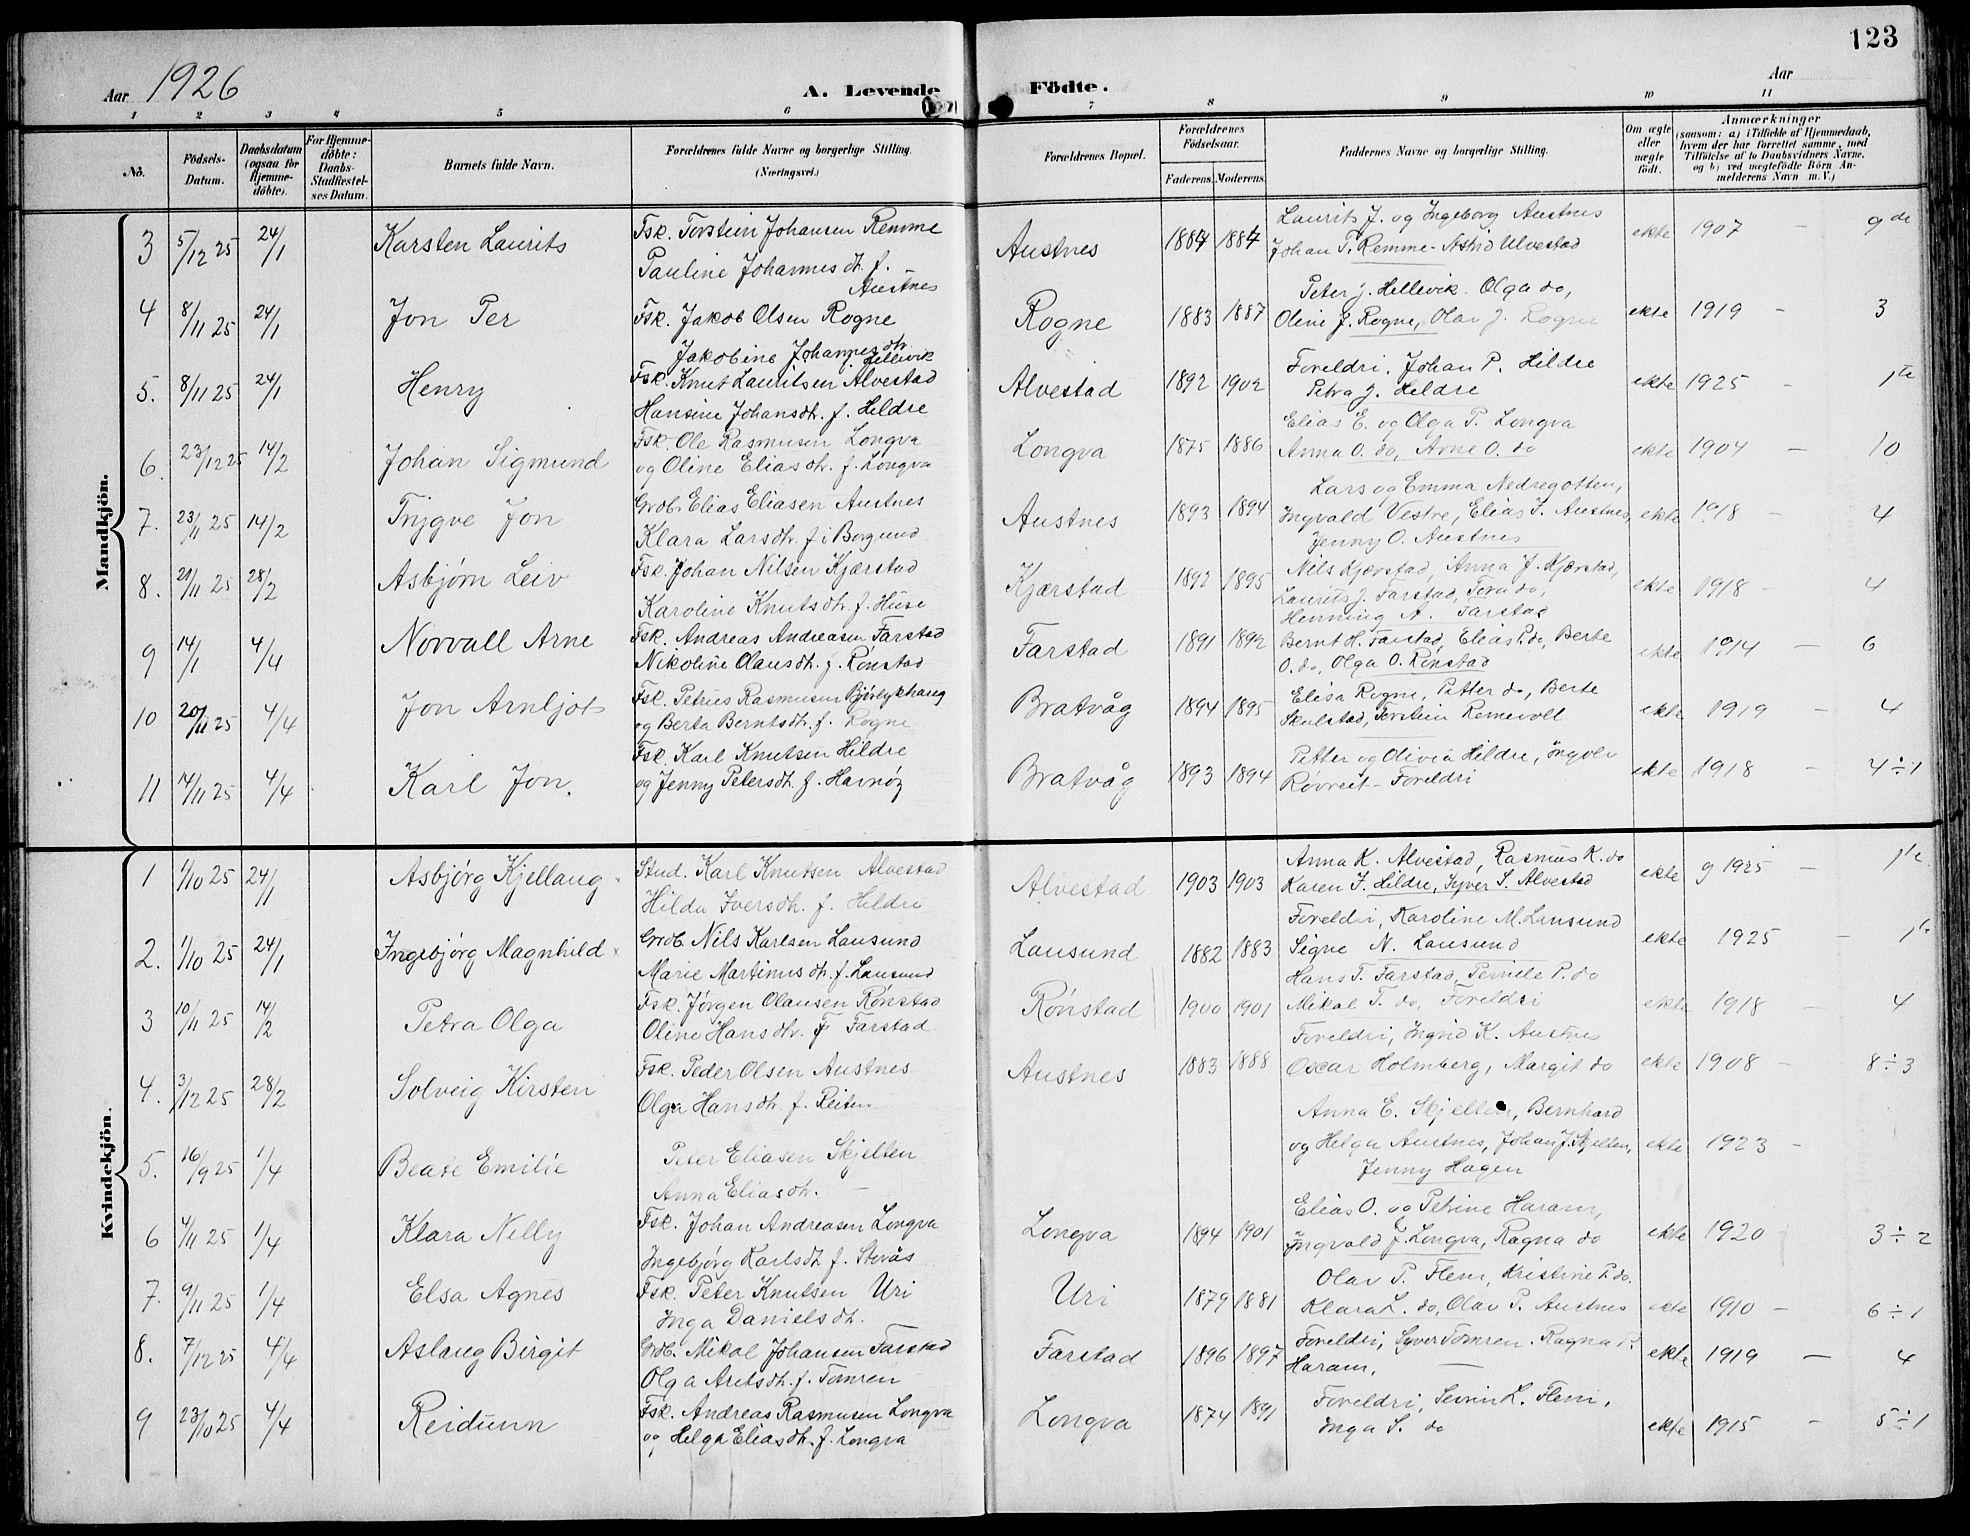 123
Aar 1926
A. Levende Födte.
Aar
1 2 3 4 5 6 7 8 9 10 11
No.
Födsels-Datum.
Daabsdatum (ogsaa for Hjemme-döbte).
For Hjemme-döbte: Daabs-Stadfæstel-ses Datum.
Barnets fulde Navn.
Forældrenes fulde Navne og borgerlige Stilling. (Næringsvei.)
Forældrenes Bopæl.
Forældrenes Födselsaar.
Faderens. Moderens.
Faddernes Navne og borgerlige Stilling.
Om ægte eller uægte födt.
Anmærkninger
(saasom: a) i Tilfælde af Hjemmedaab, hvem der har forrettet samme, med Tilföielse af to Daabsvidners Navne, og b) ved uægtefödte Börn An-melderens Navn m. V.)
Mandkjön.
3 5/12 25 24/1 Karsten Laurits Fsk. Torstein Johansen Remme Austnes 1884 1884 Laurits J. og Ingeborg Austnes ekte 1907 - 9de
Pauline Johannesdtr. f. Austnes Johan T. Remme - Astrid Ulvestad
4 8/11 25 24/1 Jon Per Fsk. Jakob Olsen Rogne Rogne 1883 1887 Peter J. Hellevik. Olga do, ekte 1919 - 3
Jakobine Johannesdtr. Hellevik Oline J. Rogne, Olav J. Rogne
5. 8/11 25 24/1 Henry Fsk. Knut Lauritsen Alvestad Alvestad 1892 1902 Foreldri. Johan P. Hildre ekte 1925 - 1te
Hansine Johansdtr. f. Hildre Petra J. Hildre
6. 23/12 25 14/2 Johan Sigmund Fsk. Ole Rasmusen Longva Longva 1875 1886 Elias E. og Olga P. Longva ekte 1904 - 10
og Oline Eliasdtr. f. Longva Anna O. do, Arne O. do
7. 23/11 25 14/2 Trygve Jon Grdb. Elias Eliasen Austnes Austnes 1893 1894 Lars og Emma Nedregotten, ekte 1918 - 4
Klara Larsdtr. f i Borgund Ingvald Vestre, Elias J. Austnes,
Jenny O. Austnes
8. 21/11 25 28/2 Asbjørn Leiv Fsk. Johan Nilsen Kjærstad Kjærstad 1892 1895 Nils Kjærstad, Anna J. Kjærstad, ekte 1918 - 4
Karoline Knutsdtr. f. Huse Laurits J. Farstad, Tora do,
Henning A. Farstad
9 14/1 4/4 Norvall Arne Fsk. Andreas Andreasen Farstad Farstad 1891 1892 Bernt H. Farstad, Elias P. do, Berte ekte 1914 - 6
Nikoline Olausdtr. f. Rønstad O. do, Olga O. Rønstad
10 20/11 25 4/4 Jon Arnljot Fsk. Petrus Rasmusen Bjørlykhaug Bratvåg 1894 1895 Elisa Rogne, Petter do, Berte ekte 1919 - 4
og Berta Berntsdtr. f. Rogne Skulstad, Torstein Remevoll
11 14/11 25 4/4 Karl Jon. Fsk. Karl Knutsen Hildre Bratvåg 1893 1894 Petter og Olivia Hildre, ekte 1918 - 4÷1
og Jenny Petersdtr. f. Havnøy Foreldri
Kvindekjön.
1 1/10 25 24/1 Asbjørg Kjellaug Stud. Karl Knutsen Alvestad Alvestad 1903 1903 Anna K. Alvestad, Rasmus K. do ekte g 1925 - 1te
Hilda Iversdtr. f. Hildre Karen J. Hildre, Syver S. Alvestad
2. 1/10 25 24/1 Ingebjørg Magnhild Grdb. Nils Karlsen Lausund Lausund 1882 1883 Foreldri, Karoline M. Lausund ekte 1925 - 1te
Marie Martinusdtr. f. Lausund Signe N. Lausund
3 10/11 25 14/2 Petra Olga Fsk. Jørgen Olausen Rønstad Rønstad 1900 1901 Hans T. Farstad, Pernele P. do ekte 1918 - 4
Oline Hansdtr. f Farstad Mikal T. do, Foreldri
4. 3/12 25 28/2 Solveig Kirsten Fsk. Peder Olsen Austnes Austnes 1883 1888 Foreldri, Ingrid K. Austnes ekte 1908 - 8÷3
Olga Hansdtr. f. Reiten Oscar Holmberg, Margit do
5. 16/9 25 1/4 Beate Emilie Peter Eliasen Skjelten Anna E. Skjelten, Bernhard ekte 1923 -
Anna Eliasdtr. - og Helga Austnes, Johan J. Skjelten,
Jenny Hagen
6 4/11 25 1/4 Klara Nelly Fsk. Johan Andreasen Longva Longva 1894 1901 Elias O. og Petrine Haram, ekte 1920 3÷2
Ingebjørg Karlsdtr f. Storås Ingvald J. Longva, Ragna do
7. 9/11 25 1/4 Elsa Agnes Fsk. Peter Knutsen Uri Uri 1879 1881 Olav P. Flem, Kristine P. do. ekte 1910 - 6÷1
Inga Danielsdtr. Klara L. do, Olav P. Austnes
8. 7/12 25 4/4 Aslaug Birgit Grdb. Mikal Johansen Farstad Farstad 1896 1897 Foreldri, Syver Tomren. Ragna P. ekte 1919 - 4
Olga Aretsdtr. f. Tomren Haram,
9 23/10 25 4/4 Reidunn Fsk. Andreas Rasmusen Longva Longva 1874 1891 Foreldri, Sevrin L. Flem, ekte 1915 - 5÷1
og Helga Eliasdtr. f. Longva Inga S. do